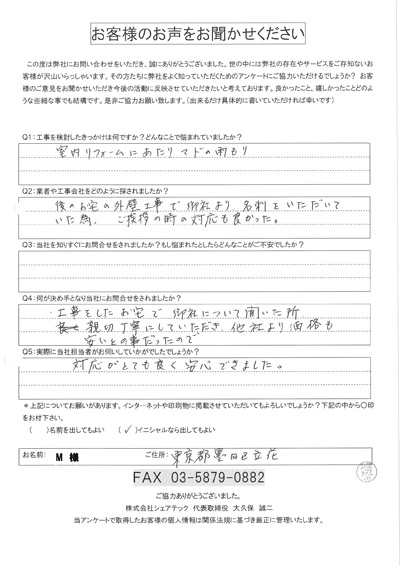 お客様のお声をお聞かせください
この度は弊社にお問い合わせをいただき、誠にありがとうございました。世の中には弊社の存在やサービスをご存知ないお
客様が沢山いらっしゃいます。その方たちに弊社をよく知っていただくためのアンケートにご協力いただけるでしょうか？ お客
様のご意見をお聞かせいただき今後の活動に反映させていただきたいと考えております。良かったこと、嬉しかったことどのよ
うな些細な事でも結構です。是非ご協力お願い致します。（出来るだけ具体的に書いていただければ幸いです）
Q1：工事を検討したきっかけは何ですか？どんなことで悩まれていましたか？
室内リフォームにあたりマドの雨もり
Q2：業者や工事会社をどのように探されましたか？
後のお宅の外壁工事で御社より、名刺をいただいて
いた為、ご挨拶の時の対応も良かった。
Q3：当社を知りすぐにお問合せをされましたか？もし悩まれたとしたらどんなことがご不安でしたか？
Q4：何が決め手となり当社にお問合せをされましたか？
・工事をしたお宅で 御社について聞いた所
親切丁寧にしていただき、他社より価格も
安いとの事だったので
Q5：実際に当社担当者がお伺いしていかがでしたでしょうか？
対応がとても良く安心できました。
＊上記についてお願いがあります。インターネットや印刷物に掲載させていただいてもよろしいでしょうか？下記の中から○印
をお付下さい。
（　　）名前を出してもよい　（✓）イニシャルなら出してもよい
お名前： M 様 ご住所： 東京都墨田区立花
FAX 03-5879-0882
ご協力ありがとうございました。
株式会社シェアテック 代表取締役 大久保 誠二
当アンケートで取得したお客様の個人情報は関係法規に基づき厳正に管理いたします。